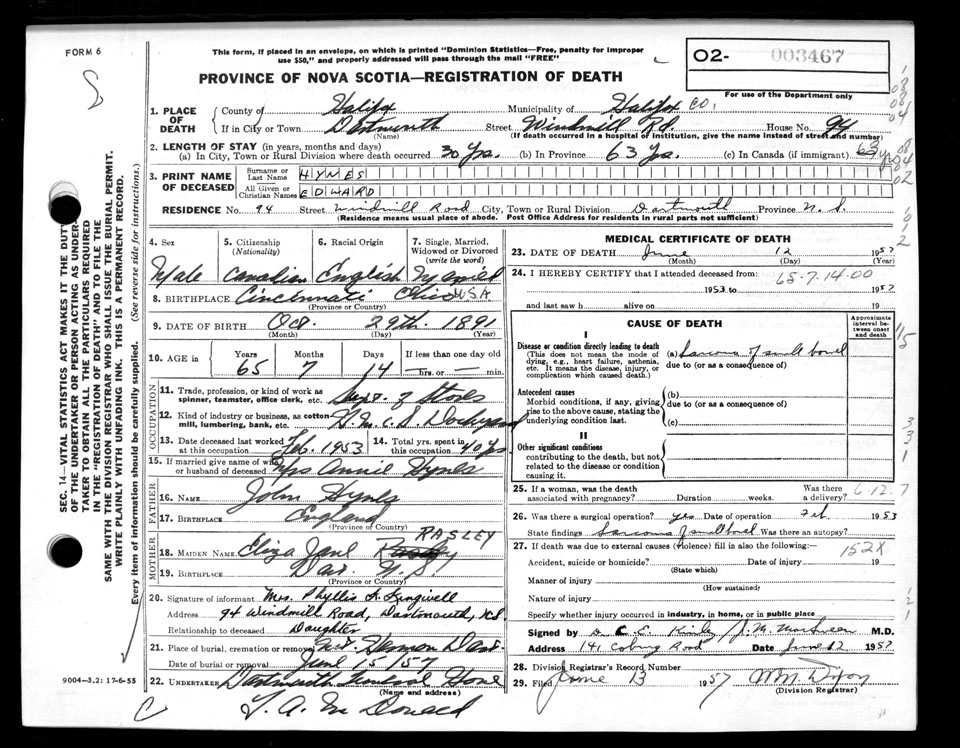 FORM 6
This form, if placed in an envelope, on which is printed "Dominion Statistics—Free, penalty for improper
use $50," and properly addressed will pass through the mail "FREE"
PROVINCE OF NOVA SCOTIA—REGISTRATION OF DEATH
O2- 003467
For use of the Department only
1. PLACE OF DEATH
County of Halifax Municipality of Halifax Co,
If in City or Town Dartmouth Street Windmill Rd. House No. 94
(Name) (If death occurred in a hospital or institution, give the name instead of street and number)
2. LENGTH OF STAY (in years, months and days)
(a) In City, Town or Rural Division where death occurred 30 Yrs. (b) In Province 63 Yrs. (c) In Canada (if immigrant) 63 yrs
3. PRINT NAME OF DECEASED
Surname or Last Name HYNES
All Given or Christian Names EDWARD
RESIDENCE No. 94 Street Windmill Road City, Town or Rural Division Dartmouth Province N. S.
(Residence means usual place of abode. Post Office Address for residents in rural parts not sufficient)
4. Sex
Male
5. Citizenship (Nationality)
Canadian
6. Racial Origin
English
7. Single, Married, Widowed or Divorced (write the word)
Married
8. BIRTHPLACE Cincinnati Ohio U.S.A
(Province or Country)
9. DATE OF BIRTH Oct. 29th. 1891
(Month) (Day) (Year)
10. AGE in Years Months Days If less than one day old
65 7 14 hrs. or min.
OCCUPATION
11. Trade, profession, or kind of work as spinner, teamster, office clerk, etc. Supt. of Stores
12. Kind of industry or business, as cotton mill, lumbering, bank, etc. H.M.C.S Dockyard
13. Date deceased last worked at this occupation Feb. 1953
14. Total yrs. spent in this occupation 40 Yrs
15. If married give name of wife or husband of deceased Mrs Annie Hynes
FATHER
16. NAME John Hynes
17. BIRTHPLACE England
(Province or Country)
MOTHER
RASLEY
18. MAIDEN NAME Eliza Jane
19. BIRTHPLACE Dar. N.S.
(Province or Country)
20. Signature of informant Mrs. Phyllis
Address 94 Windmill Road, Dartmouth, N.S.
Relationship to deceased Daughter
21. Place of burial, cremation or removal Mt. Hermon Dart.
Date of burial or removal June 15/57
22. UNDERTAKER Dartmouth Funeral Home
(Name and address)
T. A. McDonald
MEDICAL CERTIFICATE OF DEATH
23. DATE OF DEATH June 12 1957
(Month) (Day) (Year)
24. I HEREBY CERTIFY that I attended deceased from: 65-7.14.00
1953 to 1957
and last saw h alive on 19
CAUSE OF DEATH
Approximate interval between onset and death
I
Disease or condition directly leading to death
(This does not mean the mode of dying, e.g., heart failure, asthenia, etc. It means the disease, injury, or complication which caused death.)
(a) Sarcoma of small bowel
due to (or as a consequence of)
Antecedent causes
Morbid conditions, if any, giving rise to the above cause, stating the underlying condition last.
(b)
due to (or as a consequence of)
(c)
II
Other significant conditions
contributing to the death, but not related to the disease or condition causing it.
25. If a woman, was the death associated with pregnancy? Duration weeks. Was there a delivery? 6-12.7
26. Was there a surgical operation? yes Date of operation Feb 1953
State findings Sarcoma of small bowel Was there an autopsy?
27. If death was due to external causes (violence) fill in also the following:— 152X
Accident, suicide or homicide? Date of injury 19
(State which)
Manner of injury
(How sustained)
Nature of injury
Specify whether injury occurred in industry, in home, or in public place
Signed by Dr C. E. Kinley / J. M. M.D.
Address 141 Coburg Road Date June 12 1957
28. Division Registrar's Record Number
29. Filed June 13 1957
(Division Registrar)
SEC. 14—VITAL STATISTICS ACT MAKES IT THE DUTY
OF THE UNDERTAKER OR PERSON ACTING AS UNDERTAKER TO OBTAIN ALL THE PARTICULARS REQUIRED
IN THE "REGISTRATION OF DEATH" AND TO FILE THE
SAME WITH THE DIVISION REGISTRAR WHO SHALL ISSUE THE BURIAL PERMIT.
WRITE PLAINLY WITH UNFADING INK. THIS IS A PERMANENT RECORD.
Every item of information should be carefully supplied. (See reverse side for instructions.)
9004—3.2: 17-6-55